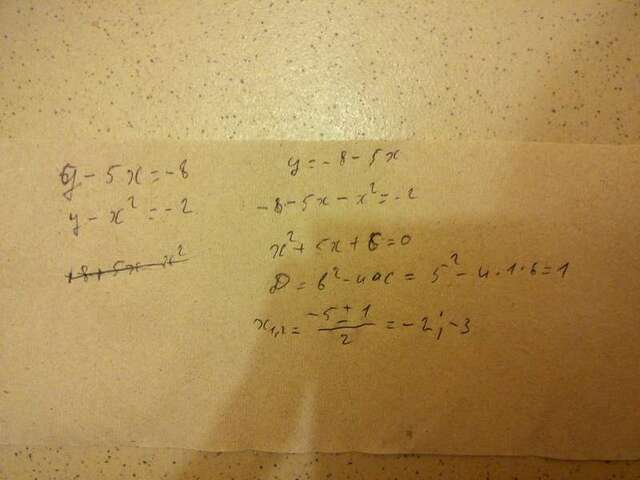 y - 5x = -8
y - x² = -2
+8+5x-x²
y = -8 - 5x
-8-5x-x²=-2
x²+5x+6=0
D = b²-4ac = 5²-4·1·6=1
x₁,₂ = (-5±1)/2 = -2; -3